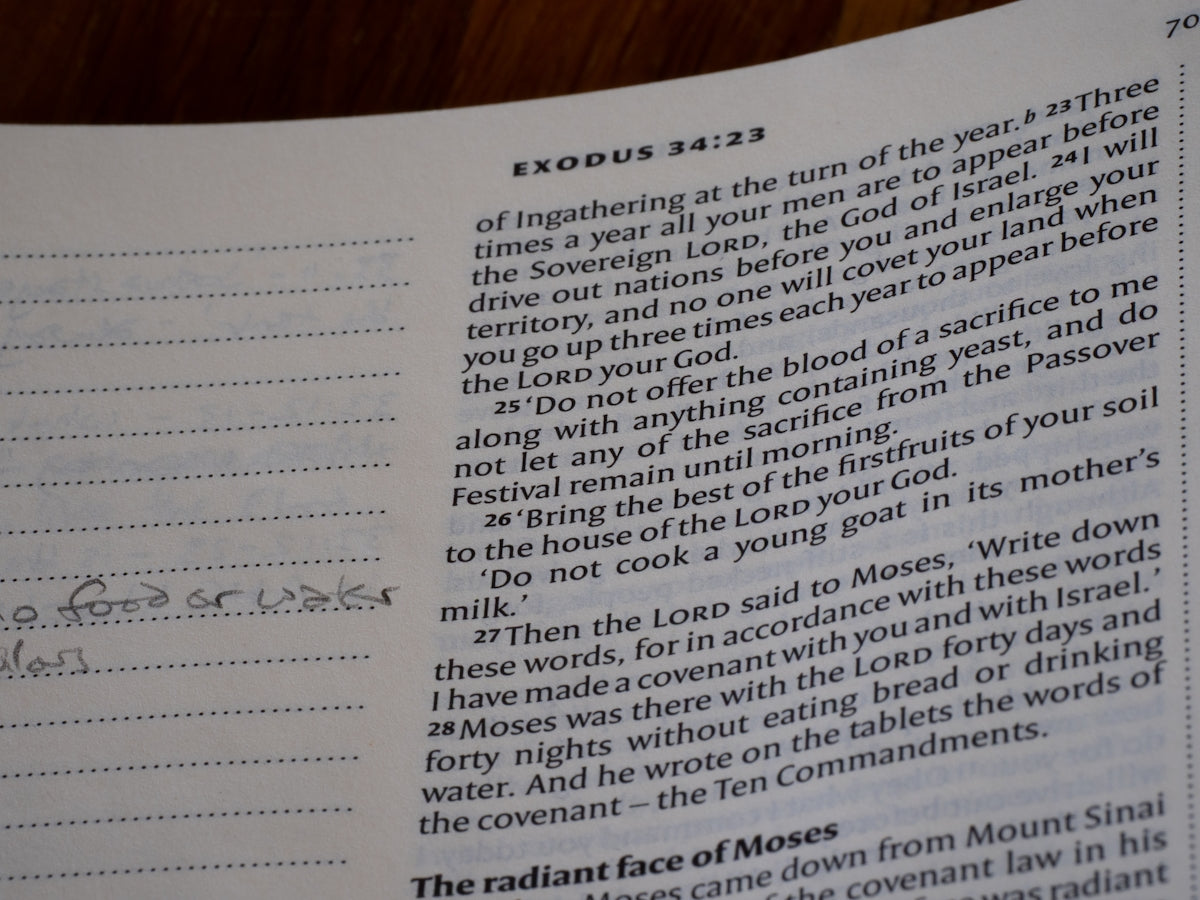 70
EXODUS 34:23
of Ingathering at the turn of the year.b 23Three
times a year all your men are to appear before
the Sovereign LORD, the God of Israel. 24I will
drive out nations before you and enlarge your
territory, and no one will covet your land when
you go up three times each year to appear before
the LORD your God.
25‘Do not offer the blood of a sacrifice to me
along with anything containing yeast, and do
not let any of the sacrifice from the Passover
Festival remain until morning.
26‘Bring the best of the firstfruits of your soil
to the house of the LORD your God.
‘Do not cook a young goat in its mother’s
milk.’
27Then the LORD said to Moses, ‘Write down
these words, for in accordance with these words
I have made a covenant with you and with Israel.’
28Moses was there with the LORD forty days and
forty nights without eating bread or drinking
water. And he wrote on the tablets the words of
the covenant – the Ten Commandments.
The radiant face of Moses
Moses came down from Mount Sinai
the covenant law in his
was radiant
food or water